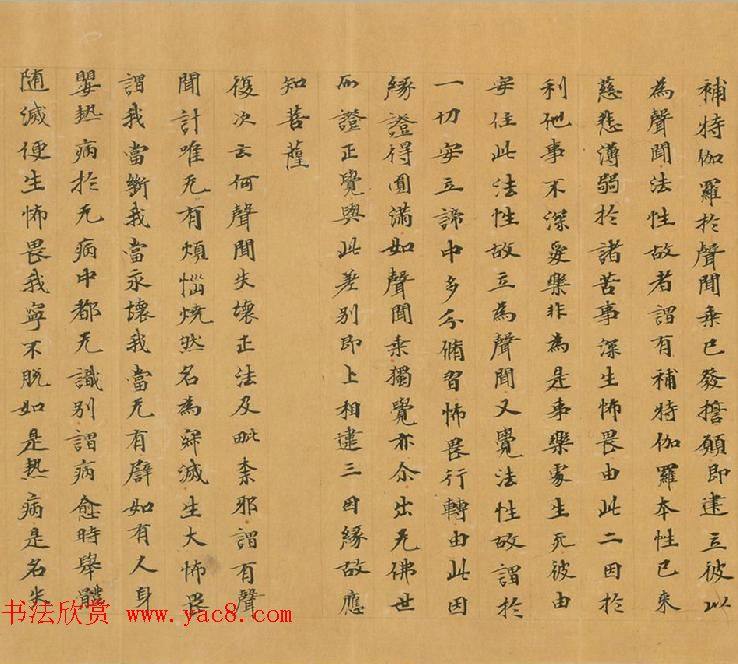 補特伽羅於聲聞乘已發擔願即建立彼以
為聲聞法性故者謂有補特伽羅本性已來
慈悲薄弱於諸苦事深生怖畏由此二因於
利他事不深愛樂非為是事樂處生死彼由
安住此法性故立為聲聞又覺法性故謂於
一切安立諦中多分脩習怖畏行轉由此因
緣證得圓滿如聲聞乘獨覺亦尒出无佛世
而證正覺與此差別即上相違三因緣故應
知菩薩
復次云何聲聞失壞正法及毗柰耶謂有聲
聞計唯无有煩惱燒然名為寂滅生大怖畏
謂我當斷我當永壞我當无有譬如有人身
嬰熱病於无病中都无識別謂病愈時舉體
随滅便生怖畏我寧不脫如是熱病是名失
书法欣赏 www.yac8.com